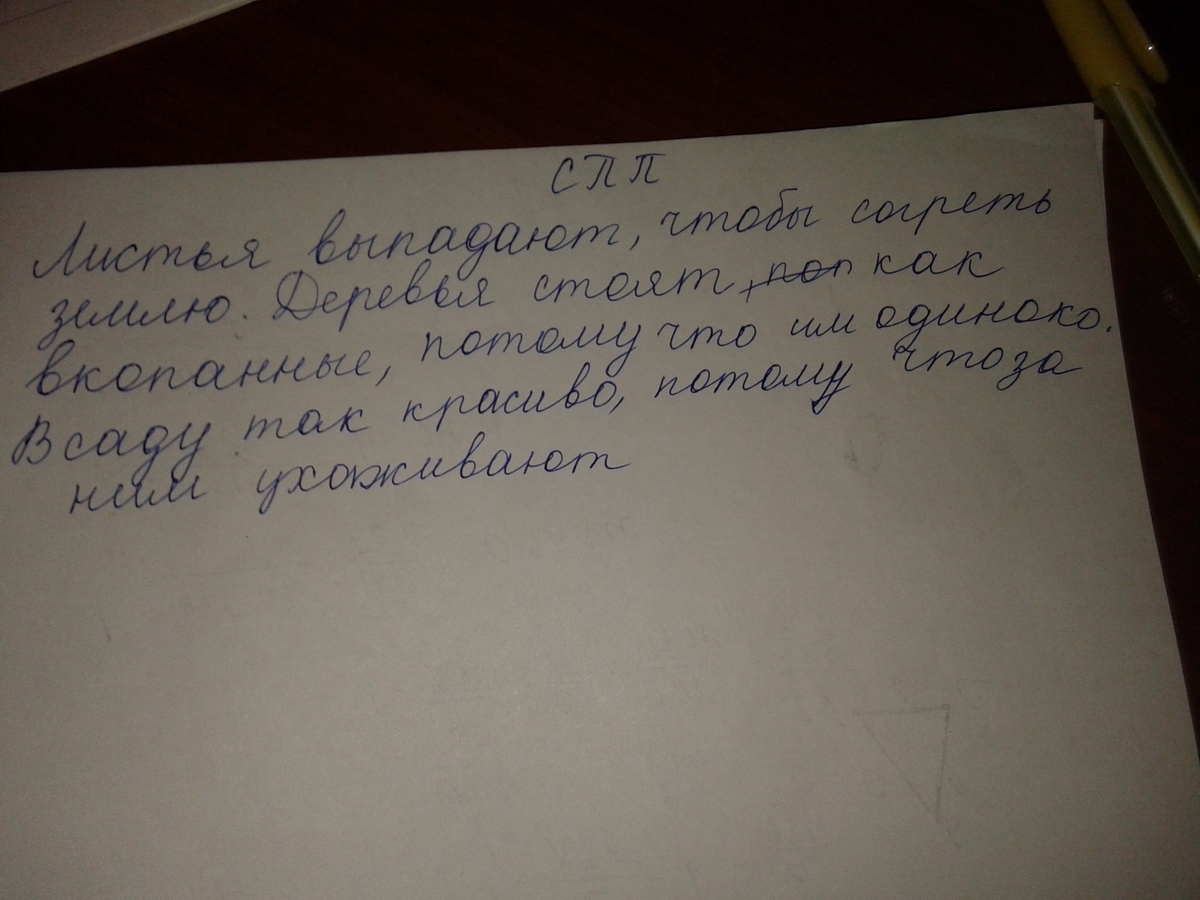 СПП
Листья выпадают, чтобы согреть
землю. Деревья стоят, как
вкопанные, потому что им одиноко.
В саду так красиво, потому что за
ним ухаживают